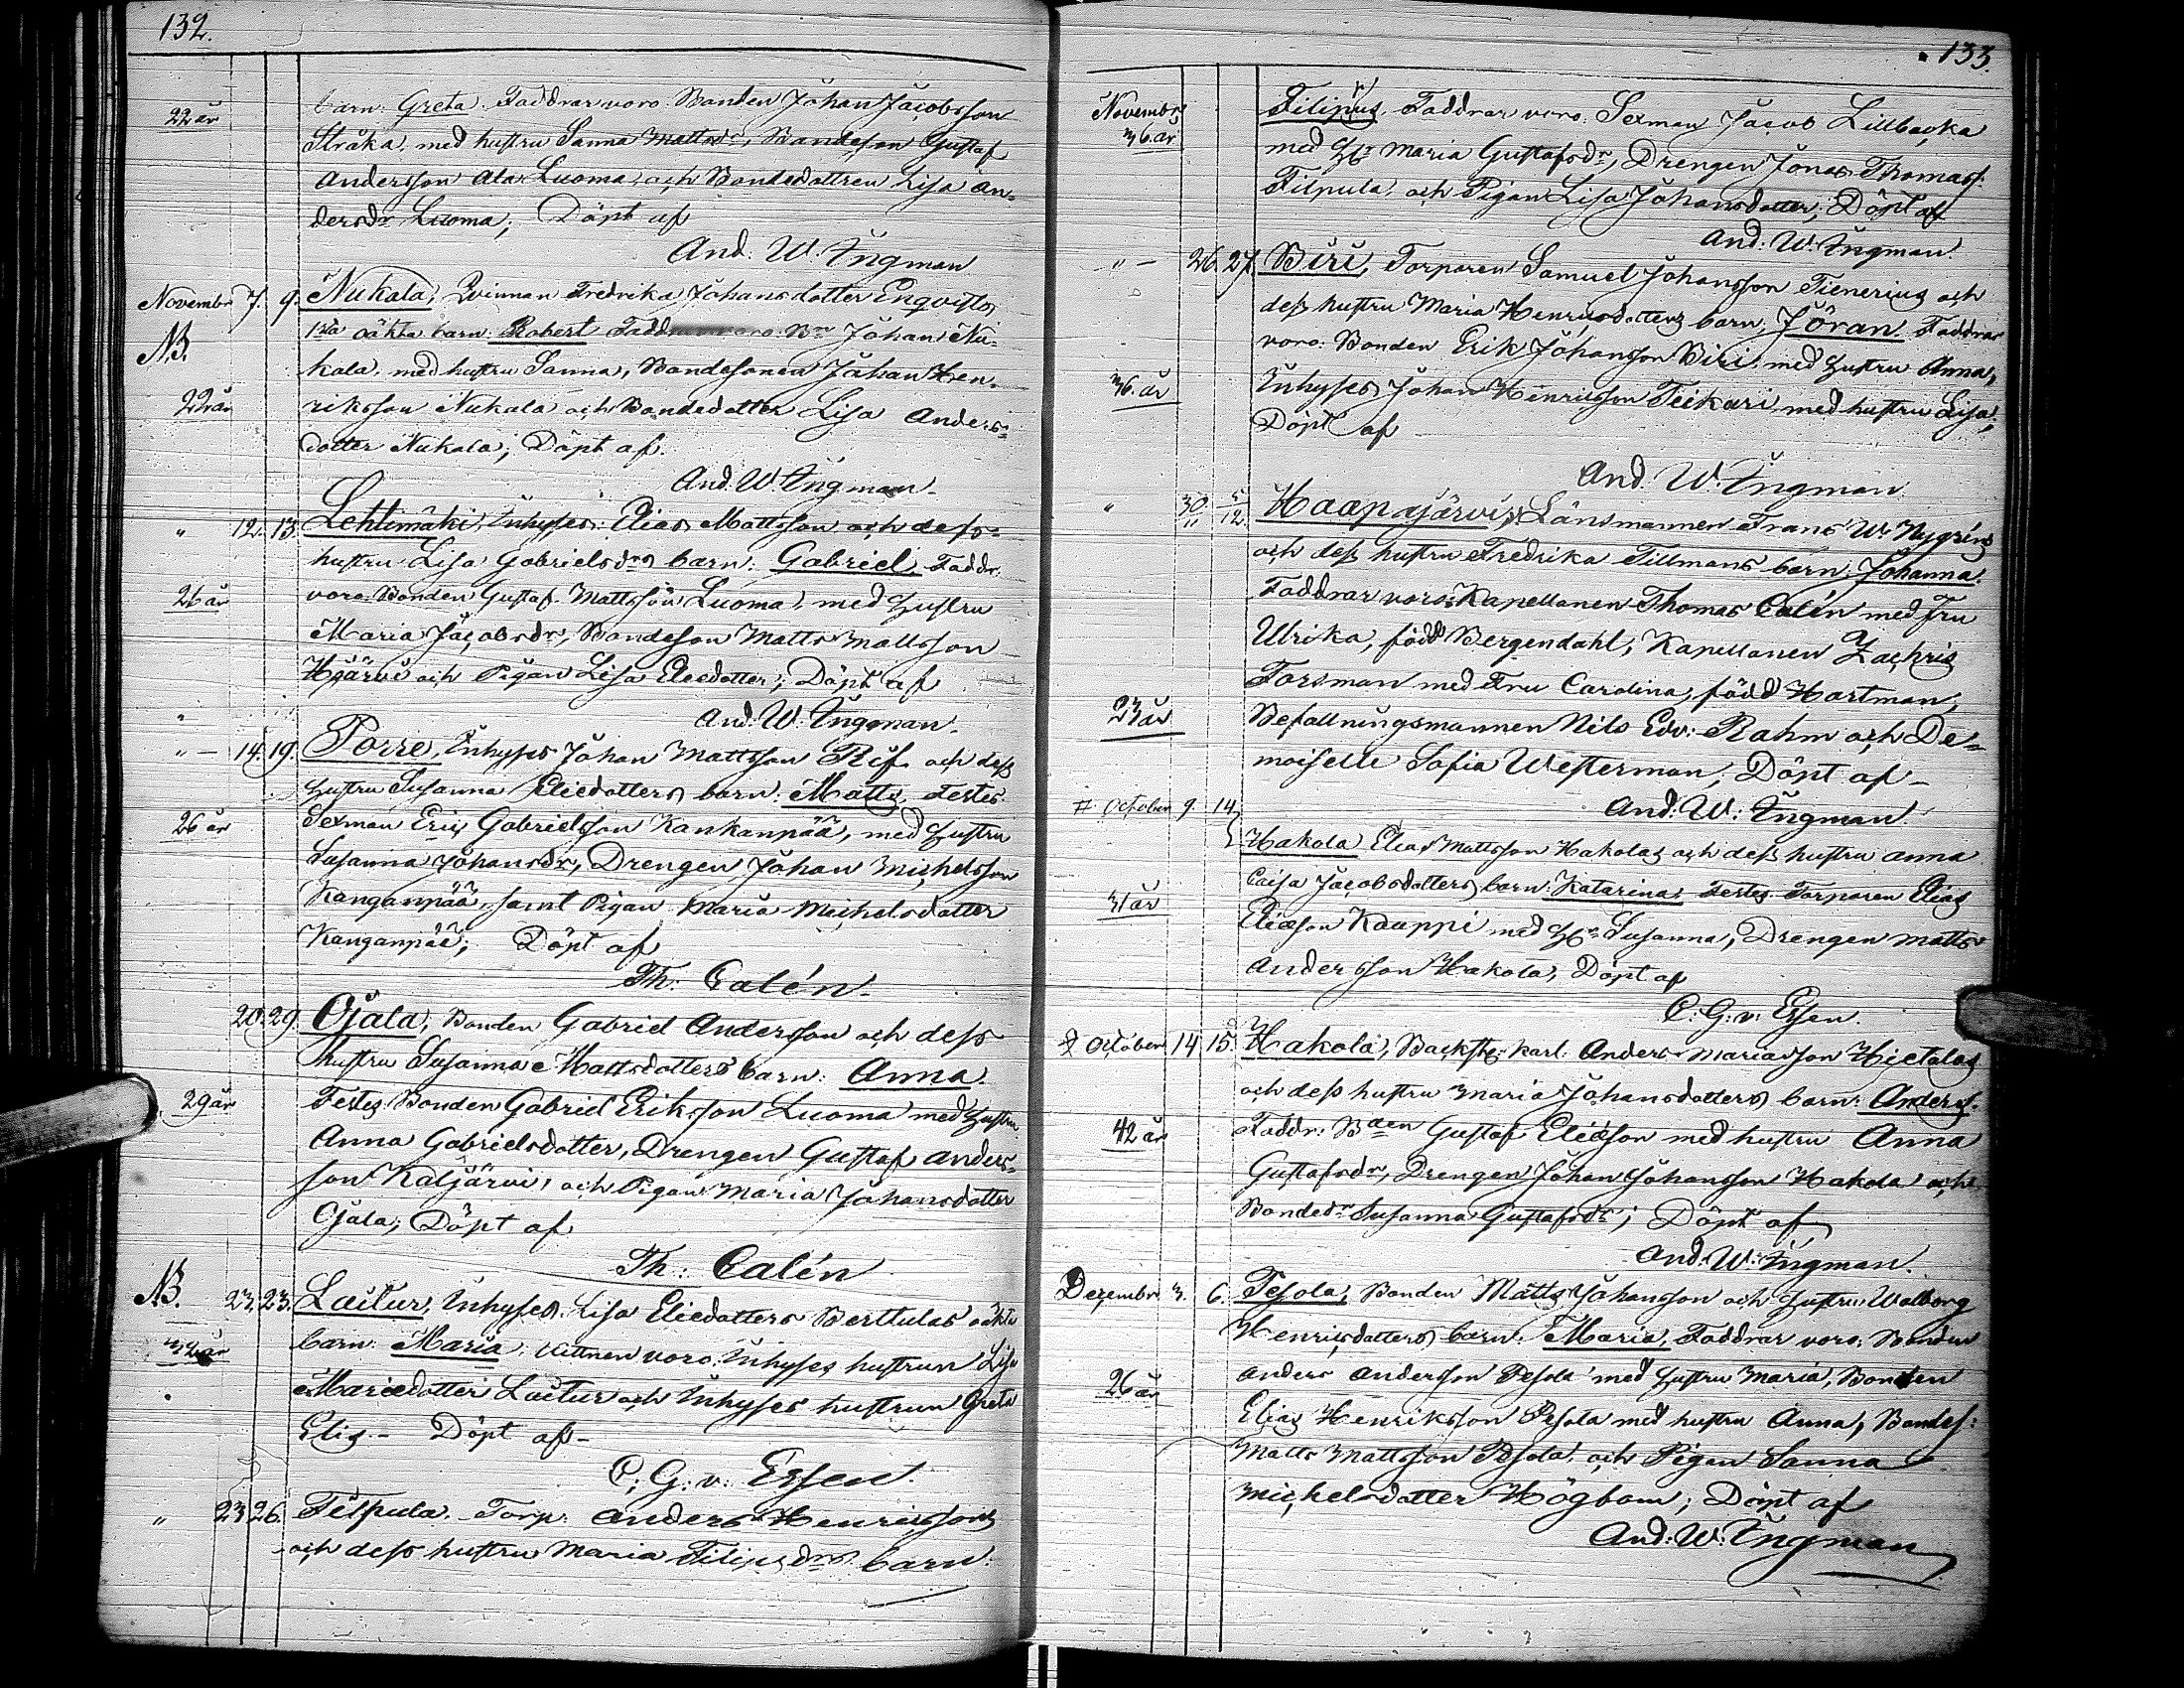 132.
22 år
barn: Greta. Faddrar voro: Bonden Johan Jacobsson
Straka, med hustru Sanna Mattsdr, Bondeson Gustaf
Andersson Ala Luoma, och Bondedottren Lisa An-
dersdr Luoma; Döpt af
And. W. Ingman
Novembr 7. 9. Nukala, Qvinnan Fredrika Johansdotter Enqvists
NB. oäkta barn: Robert Johan Nu-
kala, med hustru Sanna, Bondesonen Johan Hen-
22 år riksson Nukala och Bondedotter Lisa Anders-
dotter Nukala; Döpt af.
And. W. Ingman.
" 12. 13. Lehtimäki, Inhyses: Elias Mattsson och dess
hustru Lisa Gabrielsdrs barn: Gabriel, Faddr.
26 år voro: Bonden Gustaf Mattsson Luoma, med hustru
Maria Jacobsdr, Bondeson Matts Mattsson
och Pigan Lisa Eliedotter; Döpt af
And. W. Ingman.
" – 14. 19. Porre, Inhyses Johan Mattsson Rif och dess
hustru Susanna Eliedotters barn: Matts, Testes:
26 år Sexman Eric Gabrielsson Kankanpää, med hustru
Susanna Johansdr, Drengen Johan Michelsson
Kanganpää, samt Pigan Maria Michelsdotter
Kanganpää; Döpt af
Th: Calén.
20. 29. Ojala, Bonden Gabriel Andersson och dess
hustru Susanna Mattsdotters barn: Anna.
29 år Testes: Bonden Gabriel Eriksson Luoma med hustru
Anna Gabrielsdotter, Drengen Gustaf Anders-
son Kaljärvi, och Pigan Maria Johansdotter
Ojala; Döpt af
Th: Calén
NB. 23. 23. Laitur, Inhyses. Lisa Eliedotters Berttulas oäkta
barn: Maria; Vittnen voro: Inhyses hustrun Lisa
Mariedotter Laitur och Inhyses hustrun Greta
Elis.– Döpt af–
C. G. v. Essen.
" 23 26. Filpula. Torp: Anders Henricssons
och dess hustru Maria Filipsdrs barn:
133.
Novembr Filipus. Faddrar voro: Sexman Jacob Lillbacka
36. år med Hu Maria Gustafsdr, Drengen Jonas Thomass:
Filpula, och Pigan Lisa Johansdotter; Döpt af
And: W. Ingman.
" – 26. 27. Biri, Torparen Samuel Johansson Tienerius och
dess hustru Maria Henricsdotters barn, Jöran. Faddrar
voro: Bonden Erik Johansson Biri, med hustru Anna,
36. år Inhyses Johan Henricsson Teikari, med hustru Lisa;
Döpt af
And. W. Ingman
" 30. 5/12 Haapajärvi, Länsmannen Frans W. Nygréns
och dess hustru Fredrika Tillmans barn: Johanna.
Faddrar voro: Kapellanen Thomas Calén med Fru
Ulrika, född Bergendahl, Kapellanen Zachris
Forsman med Fru Carolina, född Hartman,
23 år Befallningsmannen Nils Edv: Rahm och De-
moiselle Sofia Westerman; Döpt af–
And: W: Ingman.
# October 9. 14 Hakola, Elias Mattsson Hakolas och dess hustru Anna
Caisa Jacobsdotters barn: Katarina, Testes: Torparen Elias
31 år Eliæson Kauppi med Hu Susanna, Drengen Matts
Andersson Hakola, Döpt af
C: G: v: Essen.
# October 14 15. Hakola, Backstu: karl: Anders Mariasson Hietalas
och dess hustru Maria Johansdotters barn: Anders.
42 år Faddr: Bden Gustaf Eliæson med hustru Anna
Gustafsdr, Drengen Johan Johansson Hakola och
Bondedr Susanna Gustafsdr; Döpt af
And: W: Ingman.
Decembr. 3. 6. Pesola, Bonden Matts Johansson och hustru Walborg
Henricsdotters barn: Maria, Faddrar voro: Bonden
26 år Anders Andersson Pesola med hustru Maria, Bonden
Elias Henriksson Pesola med hustru Anna, Bondes:
Matts Mattsson Pesola och Pigan Sanna
Michelsdotter Högbom; Döpt af
And: W: Ingman